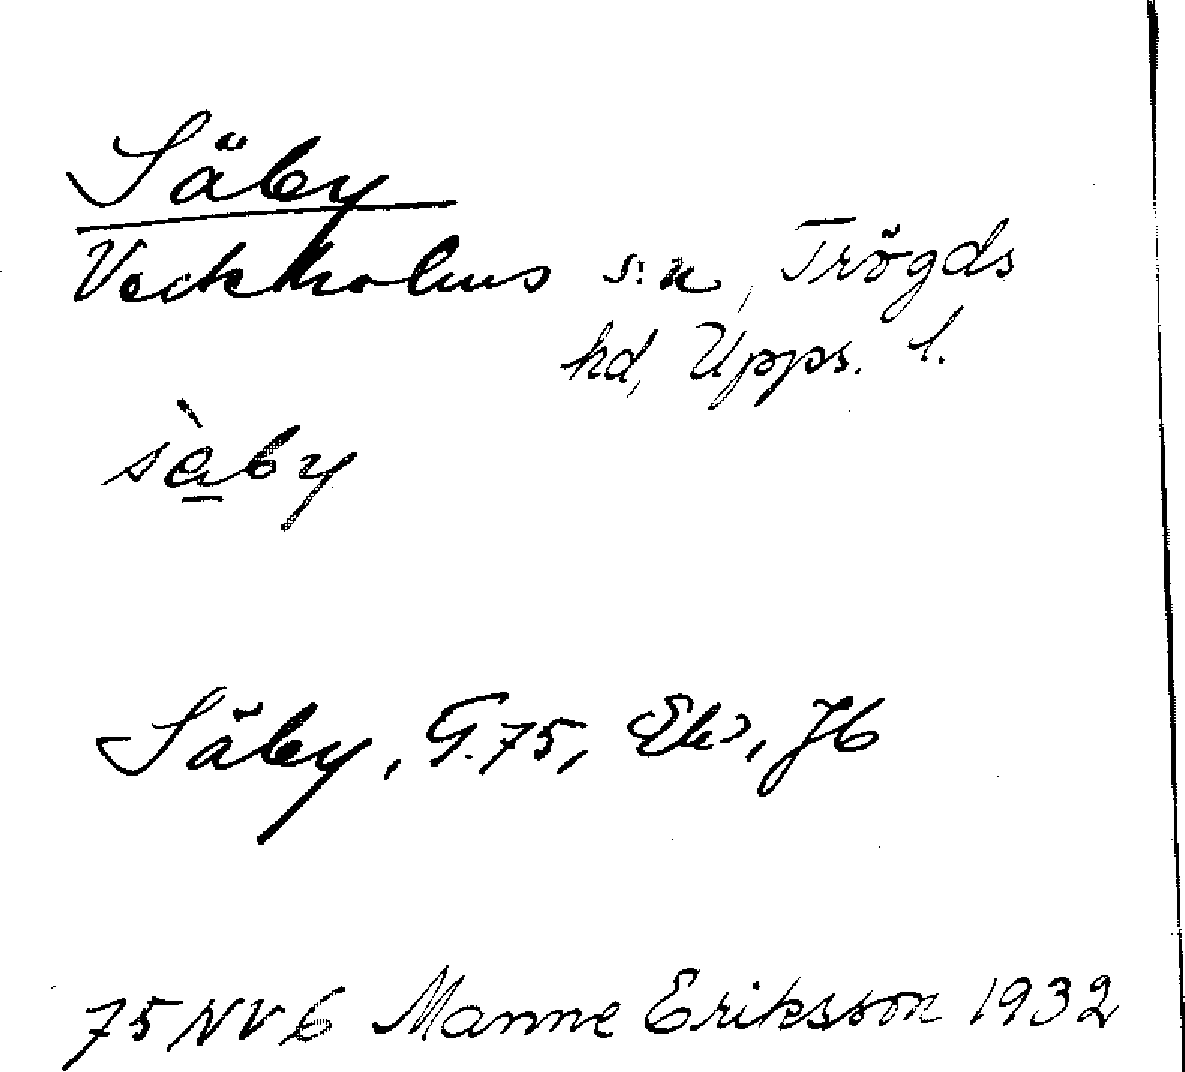 Säby
Veckholms s:n, Trögds
hd, Upps. l.
sàby
Säby, G.75, Ek, Jb
75 NV 6 Manne Eriksson 1932